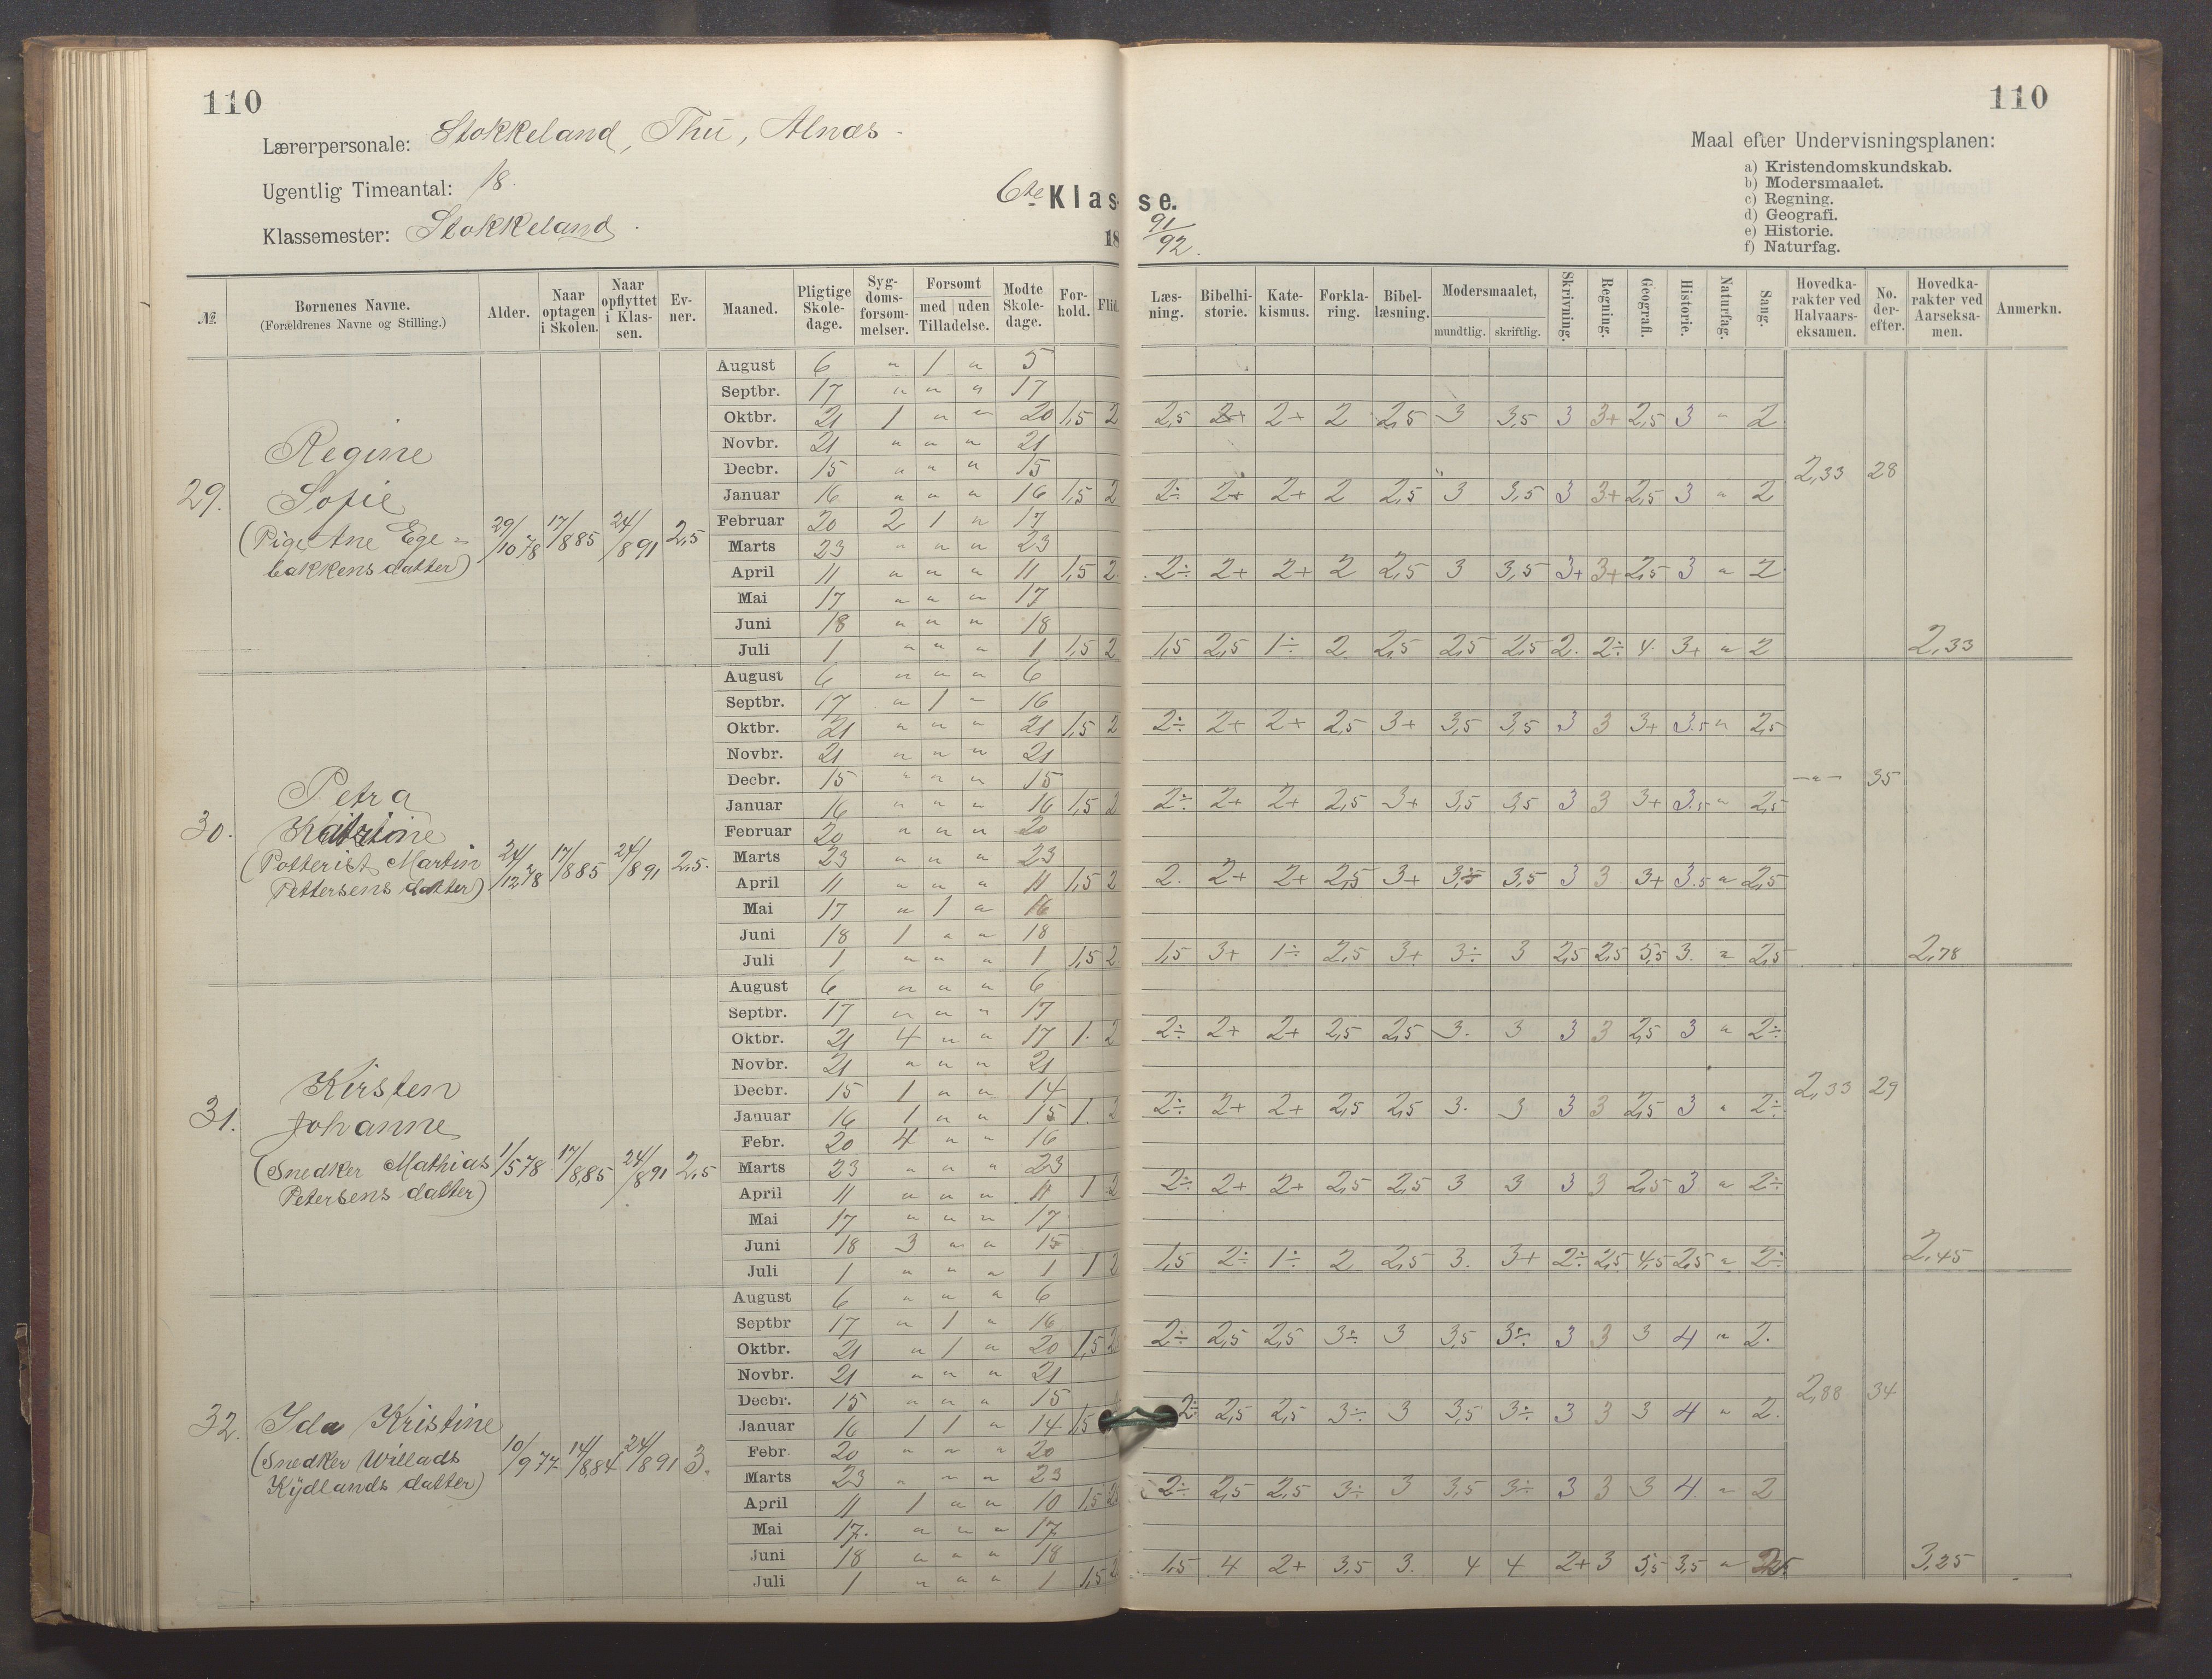 110
110
Lærerpersonale: Stokkeland, Thu, Alnæs
Ugentlig Timeantal: 18.
Klassemester: Stokkeland.
6te Klasse.
18 91/92.
Maal efter Undervisningsplanen:
a) Kristendomskundskab.
b) Modersmaalet.
c) Regning.
d) Geografi.
e) Historie.
f) Naturfag.
№ | Bornenes Navne. (Forældrenes Navne og Stilling.) | Alder. | Naar optagen i Skolen. | Naar opflyttet i Klassen. | Evner. | Maaned. | Pligtige Skoledage. | Sygdomsforsommelser. | Forsomt med uden Tilladelse. | Modte Skoledage. | Forhold. | Flid. | Læsning. | Bibelhistorie. | Katekismus. | Forklaring. | Bibellæsning. | Modersmaalet, mundtlig. skriftlig. | Skrivning. | Regning. | Geografi. | Historie. | Naturfag. | Sang. | Hovedkarakter ved Halvaarseksamen. | No. derefter. | Hovedkarakter ved Aarseksamen. | Anmerkn.
29. Regine Sofie (Pige Ane Egebakkens datter) 29/10 78 17/8 85 24/8 91 2,5
August 6 " 1 " 5
Septbr. 17 " " " 17
Oktbr. 21 1 " " 20 1,5 2 2,5 2+ 2+ 2 2,5 3 3,5 3 3+ 2,5 3 " 2
Novbr. 21 " " " 21
Decbr. 15 " " " 15 2,33 28
Januar 16 " " " 16 1,5 2 2÷ 2+ 2+ 2 2,5 3 3,5 3 3+ 2,5 3 " 2
Februar 20 2 1 " 17
Marts 23 " " " 23
April 11 " " " 11 1,5 2 2÷ 2+ 2+ 2 2,5 3 3,5 3+ 3+ 2,5 3 " 2
Mai 17 " " " 17
Juni 18 " " " 18
Juli 1 " " " 1 1,5 2 1,5 2,5 1÷ 2 2,5 2,5 2,5 2. 2÷ 4. 3+ " 2 2,33
30. Petra (Potterist Martin Pettersens datter) 24/12 78 17/8 85 24/8 91 2,5.
August 6 " " " 6
Septbr. 17 " 1 " 16
Oktbr. 21 " " " 21 1,5 2 2÷ 2+ 2+ 2,5 3+ 3,5 3,5 3 3 3+ 3.5 " 2,5
Novbr. 21 " " " 21
Decbr. 15 " " " 15 —"— 35
Januar 16 " " " 16 1,5 2 2÷ 2+ 2+ 2,5 3+ 3,5 3,5 3 3 3+ 3.5 " 2,5
Februar 20 " " " 20
Marts 23 " " " 23
April 11 " " " 11 1,5 2 2. 2+ 2+ 2,5 3+ 3,5 3,5 3 3 3+ 3.5 " 2,5
Mai 17 " 1 " 16
Juni 18 1 " " 18
Juli 1 " " " 1 1,5 2 1,5 3+ 1÷ 2,5 3+ 3÷ 3 2,5 2,5 3,5 3. " 2,5 2,78
31. Kirsten Johanne (Snedker Mathias Petersens datter) 1/5 78 17/8,85 24/8 91 2,5
August 6 " " " 6
Septbr. 17 " " " 17
Oktbr. 21 4 " " 17 1. 2 2÷ 2+ 2+ 2,5 2,5 3. 3 3 3 2,5 3 " 2÷
Novbr. 21 " " " 21
Decbr. 15 1 " " 14 2,33 29
Januar 16 1 " " 15 1. 2 2÷ 2+ 2+ 2,5 2,5 3. 3 3 3 2,5 3 " 2÷
Febr. 20 4 " " 16
Marts 23 " " " 23
April 11 " " " 11 1 2 2÷ 2+ 2+ 2,5 2,5 3 3 3 3 2,5 3 " 2÷
Mai 17 " " " 17
Juni 18 3 " " 15
Juli 1 " " " 1 1 2 1,5 2÷ 1÷ 2 2,5 3. 3+ 2÷ 2,5 4,5 2,5 " 2÷ 2,45
32. Ida Kristine (Snedker Willads Kÿdlands datter) 10/9 77 14/8,84 24/8 91 3.
August 6 " " " 6
Septbr 17 " 1 " 16
Oktbr. 21 " 1 " 20 1,5 2 2÷ 2,5 2,5 3÷ 3 3,5 3÷ 3 3 3 4 " 2.
Novbr. 21 " " " 21
Decbr. 15 " " " 15 2,88 34
Januar 16 1 1 " 14 1,5 2÷ 2,5 2,5 3÷ 3 3,5 3÷ 3 3 3 4 " 2.
Febr. 20 " " " 20
Marts 23 " " " 23
April 11 1 " " 10 1,5 2 2÷ 2,5 2,5 3÷ 3 3,5 3÷ 3 3 3 4. " 2
Mai 17. " " " 17
Juni 18 " " " 18
Juli 1 " " " 1 1,5 2 1,5 4 2+ 3,5 3. 4 4 2+ 3 5,5 3,5 " 3,25